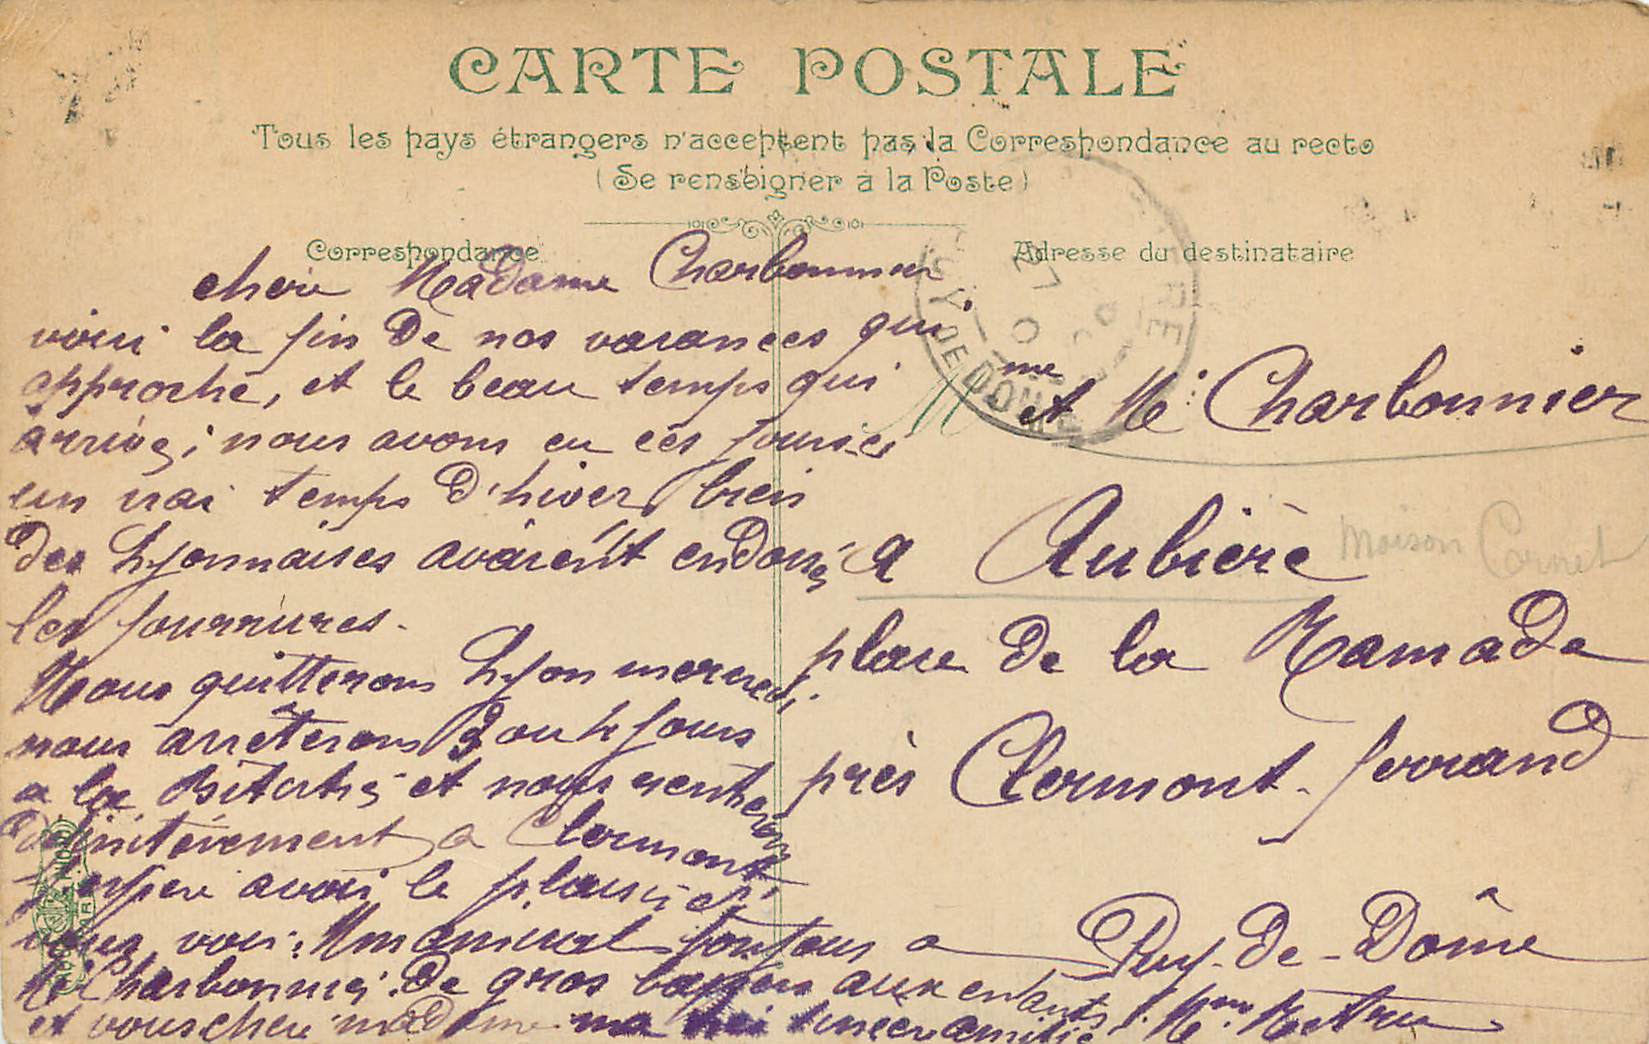 CARTE POSTALE
Tous les pays étrangers n'acceptent pas la Correspondance au recto
(Se renseigner à la Poste)
Correspondance
chère Madame Charbonnier
voici la fin de nos vacances qui
approche, et le beau temps qui
arrive; nous avons eu ces jours-ci
un vrai temps d'hiver, bien
des Lyonnaises avaient endossé
les fourrures.
Nous quitterons Lyon mercredi
nous arrêterons 3 ou 4 jours
a la et nous rentrerons
définitivement a Clermont,
J'espère avoir le plaisir de
vous voir. amical bonjour a
Mr Charbonnier. De gros baisers aux enfants
et vous chère madame ma sincère amitié. Mme
Adresse du destinataire
27
PUY DE DOME
Mme et Mr Charbonnier
a Aubière
Maison Cornet
place de la Ramade
près Clermont-Ferrand
Puy-de-Dôme